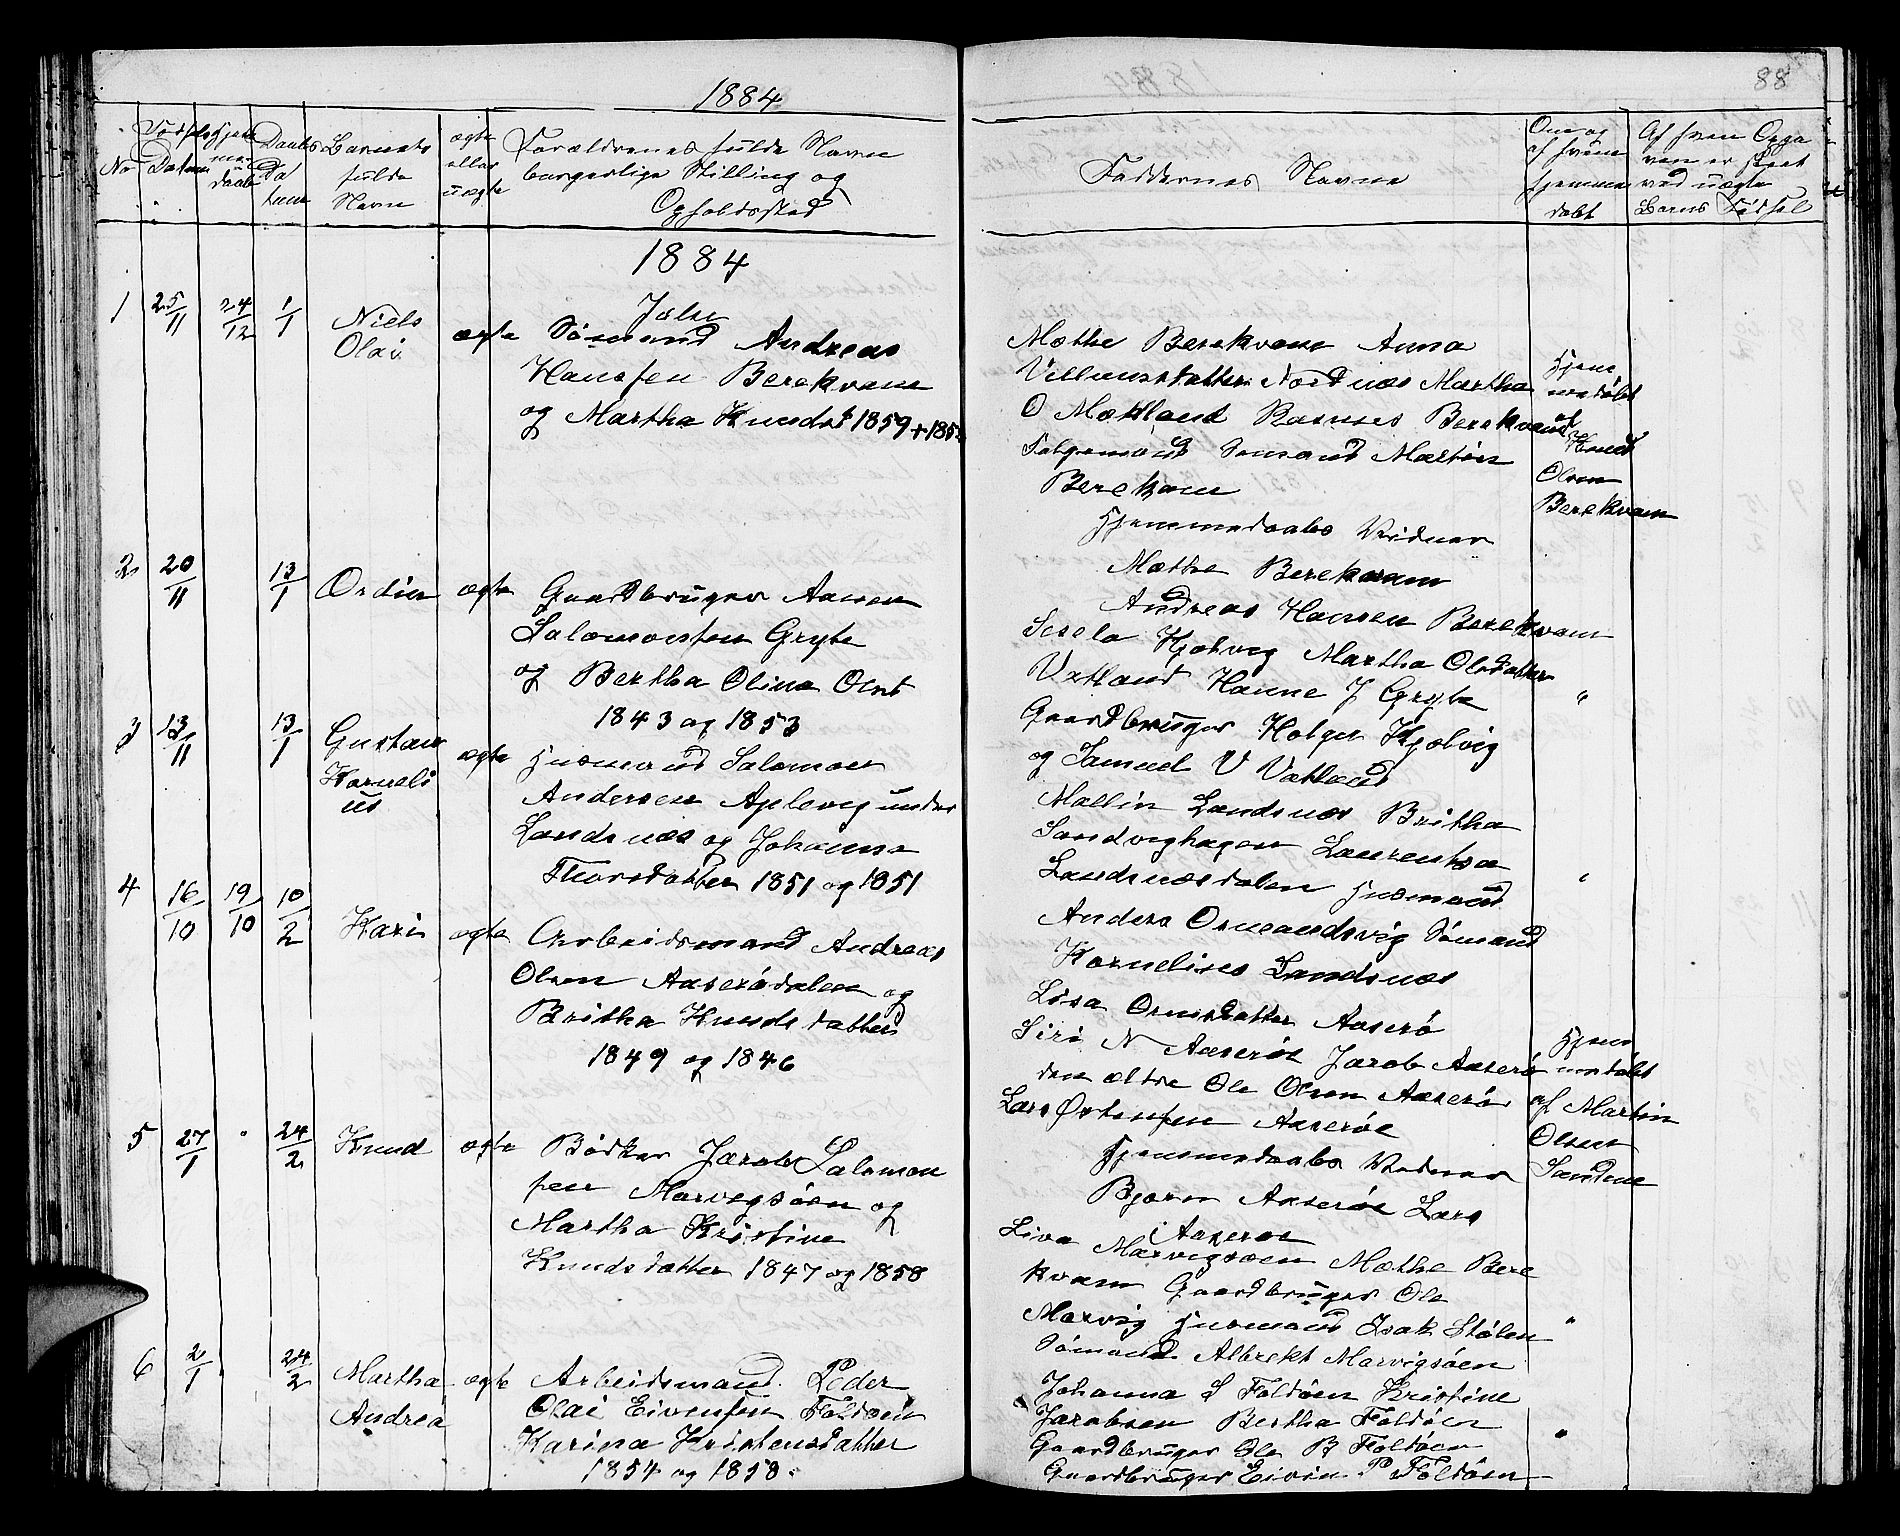 1884
88
No
Fødsels Datum
Hjemmedaab
Daabs Datum
Barnets fulde Navn
ægte eller uægte
Forældrenes fulde Navn
borgerlige Stilling og
Opholdssted
Faddernes Navne
Om og af hvem hjemmedøbt
Af hvem Opgaven er skeet ved uægte Barns Fødsel
1884
1 25/11 24/12 1/1 Niels Olai ægte
Jelse
Sømand Andreas
Hansen Berekvam
og Martha Knudsd 1859 +
Mæthe Berekvam Anna
Villumsdatter Nordnæs Martha
O Mæhland Rasmus Berekvam
Sømand Martin
Berekvam
Hjemmedaabs Vidner
Mæthe Berekvam
Andreas Hansen Berekvam
Hjemmedøbt
af
Knud
Olsen
Berekvam
2 20/11 13/1 Ordin ægte
Gaardbruger Aanen
Salomonsen Gryte
og Bertha Olina Olsd
1843 og 1853
Sesela Kjølvig Martha Olsdatter
Vatland Hanne J Gryte
Gaardbruger Holger Kjølvig
og Samuel V Vatland
"
3 13/11 13/1 Gustav Kornelius ægte
Husmand Salomon
Andersen Aplevig under
Landsnæs og Johanna
Thorsdatter 1851 og 1851
Mallin Landsnæs Britha
Sandvighagen Laurentsa
Landsnæsdalen Husmand
Anders Ormandsvig Sømand
Kornelius Landsnæs
"
4 16/10 19/10 10/2 Kari ægte
Arbeidsmand Andreas
Olsen Aaserødalen og
Britha Knudsdatter
1849 og 1846
Lisa Ormsdatter Aaserø
Siri N Aaserøe Jacob Aaserø
den ældre Ole Olsen Aaserø
Lars Østensen Aaserøe
Hjemmedaabs Vidner
Bjørn Aaserøe Lars
Aaserøe
Hjemmedøbt
af Martin
Olsen
Sandne
5 27/1 24/2 Knud ægte
Bødker Jacob Salomon
sen Marvigsøen og
Martha Kristine
Knudsdatter 1847 og 1858
Liva Marvigsøen Mæthe Bere
kvam Gaardbruger Ole
Marvig Husmand Isak Stølen
Sømand Albrekt Marvigsøen
"
6 2/1 24/2 Martha Andrea ægte
Arbeidsmand Peder
Olai Eivensen Foldøen
Karina Kristensdatter
1854 og 1858
Johanna S Foldøen Kristine
Jacobsen Bertha Foldøen
Gaardbruger Ole B Foldøen
Gaardbruger Eivin P Foldøen
"